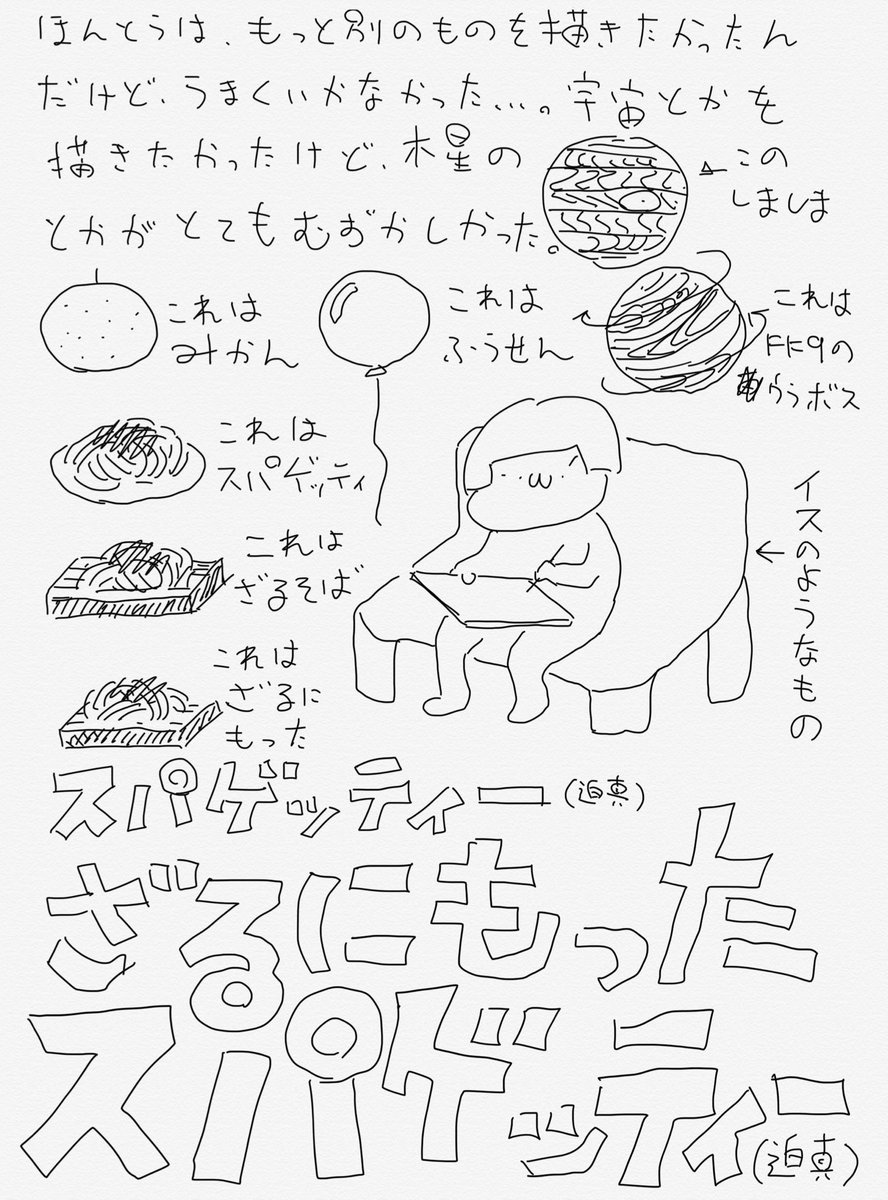 ほんとうは、もっと別のものを描きたかったん
だけど、うまくいかなかった…。宇宙とかを
描きたかったけど、木星の
とかがとてもむずかしかった。
この
しましま
これは
みかん
これは
ふうせん
これは
FF9の
ウラボス
これは
スパゲッティ
これは
ざるそば
これは
ざるに
もった
イスのようなもの
スパゲッティー(迫真)
ざるにもった
スパゲッティー(迫真)